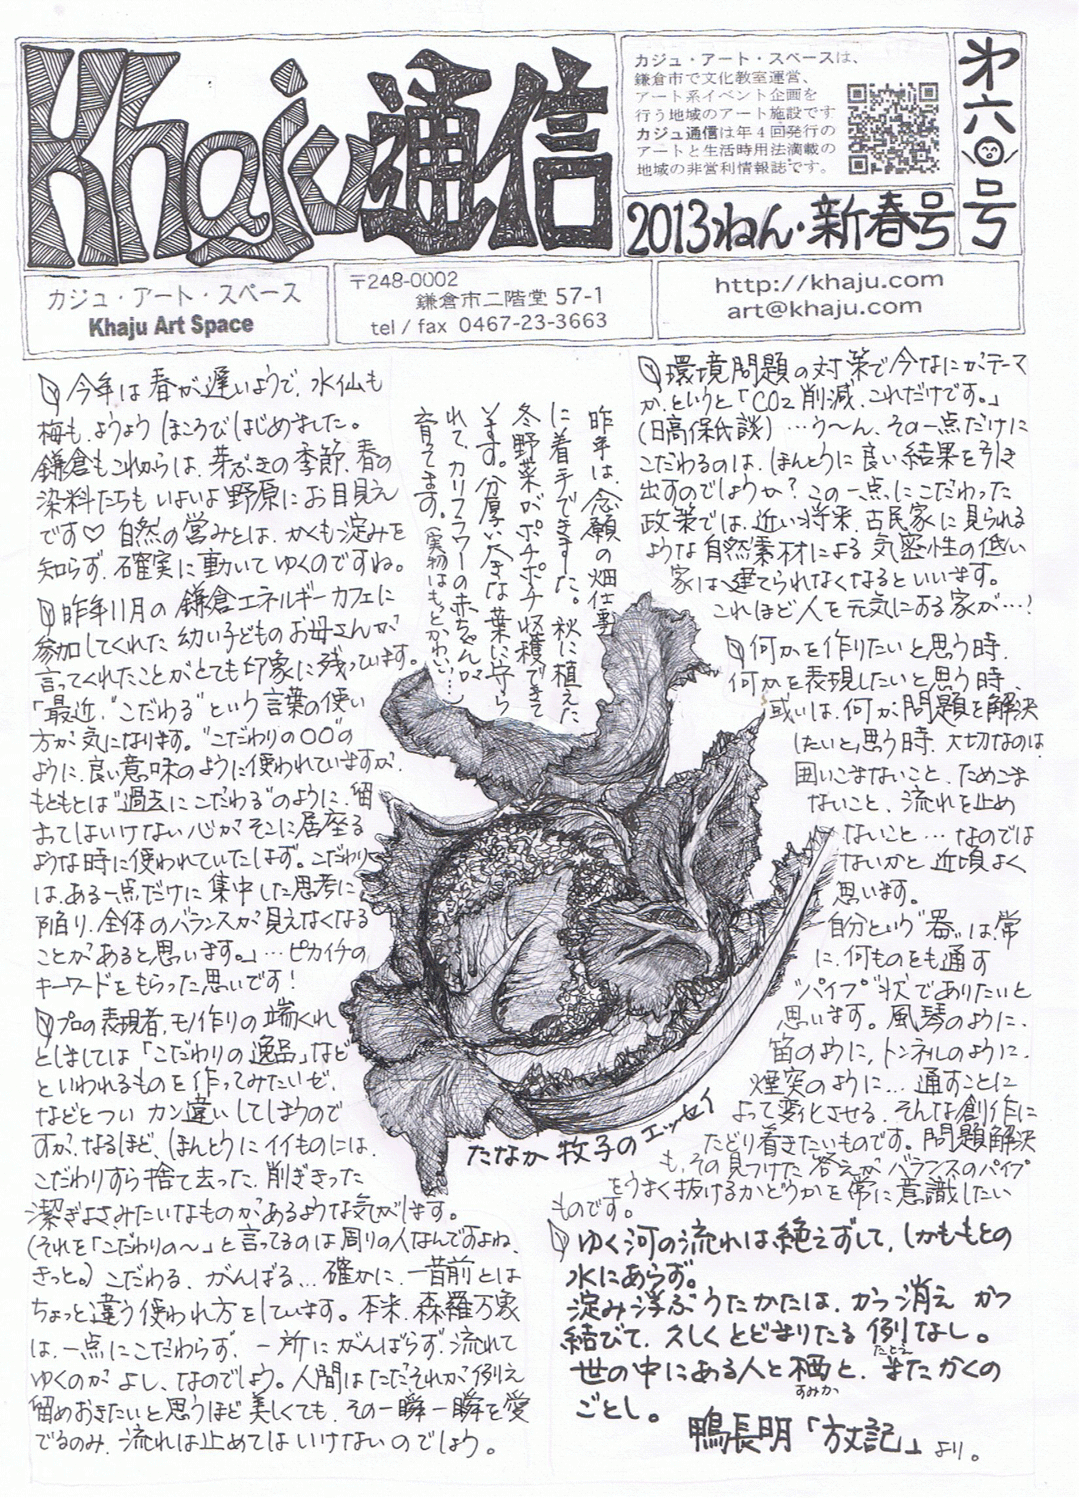 Khaju通信
カジュ・アート・スペースは、
鎌倉市で文化教室運営、
アート系イベント企画を
行う地域のアート施設です
カジュ通信は年4回発行の
アートと生活時用法満載の
地域の非営利情報誌です。
2013ねん・新春号
第六〇号
カジュ・アート・スペース
Khaju Art Space
〒248-0002
鎌倉市二階堂 57-1
tel / fax 0467-23-3663
http://khaju.com
art@khaju.com
今年は春が遅いようで、水仙も
梅も、ようようほころびはじめました。
鎌倉もこれからは、芽ぶきの季節、春の
染料たちもいよいよ野原にお目見え
です♡ 自然の営みとは、かくも淀みを
知らず、確実に動いてゆくのですね。
昨年11月の鎌倉エネルギーカフェに
参加してくれた幼い子どものお母さんが
言ってくれたことがとても印象に残っています。
「最近、“こだわる”という言葉の使い
方が気になります。“こだわりの〇〇”の
ように、良い意味のように使われていますが、
もともとは“過去にこだわる”のように、留
まてはいけない心がそこに居座る
ような時に使われていたはず。こだわり
は、ある一点だけに集中した思考に
陥り、全体のバランスが見えなくなる
ことがあると思います。」…ピカイチの
キーワードをもらった思いです！
プロの表現者、モノ作りの端くれ
としましては「こだわりの逸品」など
といわれるものを作ってみたいゼ、
などとついカン違いしてしまうので
すが、なるほど、ほんとうにイイものには、
こだわりすら捨て去った、削ぎきった
潔ぎよさみたいなものがあるような気がします。
（それを「こだわりの〜」と言ってるのは周りの人なんですよね、
きっと。）こだわる、がんばる…確かに、一昔前とは
ちょっと違う使われ方をしています。本来、森羅万象
は、一点にこだわらず、一所にがんばらず、流れて
ゆくのがよし、なのでしょう。人間はただそれが例え
留めおきたいと思うほど美しくても、その一瞬一瞬を愛
でるのみ、流れは止めてはいけないのでしょう。
昨年は、念願の畑仕事
に着手できました。秋に植えた
冬野菜がポチポチ収穫できて
います。分厚い大きな葉に守ら
れて、カリフラワーの赤ちゃんが
育ってます。（実物はもっとかわい…）
たなか牧子のエッセイ
環境問題の対策で今なにがテーマ
か、というと「CO2削減、これだけです。」
（日高保氏談）…う〜ん、その一点だけに
こだわるのは、ほんとうに良い結果を引き
出すのでしょうか？この一点にこだわった
政策では、近い将来、古民家に見られる
ような自然素材による気密性の低い
家は建てられなくなるといいます。
これほど人を元気にする家が…？
何かを作りたいと思う時、
何かを表現したいと思う時、
或いは、何か問題を解決
したいと思う時、大切なのは
囲いこまないこと、ためこま
ないこと、流れを止め
ないこと…なのでは
ないかと近頃よく
思います。
自分という“器”は、常
に、何ものをも通す
“パイプ”状でありたいと
思います。風琴のように、
笛のように、トンネルのように、
煙突のように…通すことに
よって変化させる、そんな創作に
たどり着きたいものです。問題解決
も、その見つけた答えがバランスのパイプ
をうまく抜けるかどうかを常に意識したい
ものです。
ゆく河の流れは絶えずして、しかももとの
水にあらず。
淀み浮ぶうたかたは、かつ消え かつ
結びて、久しくとどまりたる例なし。
たとえ
世の中にある人と栖と、またかくの
すみか
ごとし。
鴨長明「方丈記」より。